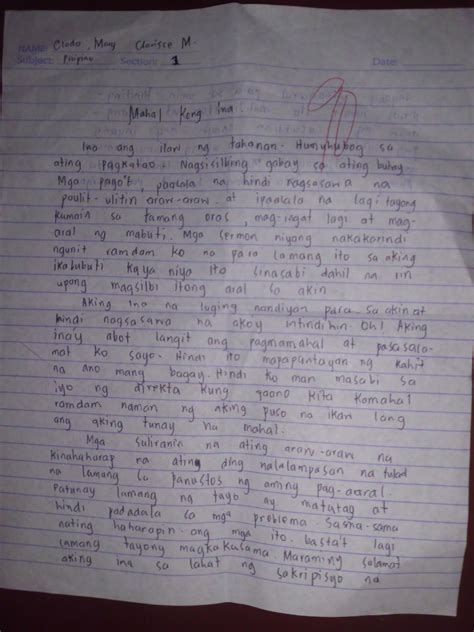 NAME: Crodo, Mary Clarisse M.
Subject: Pilipino Section: 1 Date:
Mahal Kong Ina
Ina ang ilaw ng tahanan. Humuhubog sa
ating pagkatao. Nagsisilbing gabay sa ating buhay.
Mga pago't, paalala na hindi nagsasawa na
paulit-ulitin araw-araw. at ipaalala na lagi tayong
kumain sa tamang oras, mag-ingat lagi at mag-
aral ng mabuti. Mga sermon niyang nakakarindi
ngunit ramdam ko na para lamang ito sa aking
ikabubuti kaya niya ito sinasabi dahil na rin
upang magsilbi itong aral sa akin.
Aking Ina na laging nandiyan para sa akin at
hindi nagsasawa na ako'y intindihin. Oh! Aking
ina'y abot langit ang pagmamahal at pasasala-
mat ko sayo. Hindi ito mapapantayan ng kahit
na ano mang bagay. Hindi ko man masabi sa
iyo ng direkta kung gaano kita kamahal
ramdam naman ng aking puso na ikaw lang
ang aking tunay na mahal.
Mga suliranin na ating araw-araw na
kinahaharap na ating ding nalalampasan na tulad
na lamang sa panustos ng aming pag-aaral.
Patunay lamang ng tayo ay matatag at
hindi padadala sa mga problema. Sama-sama
nating haharapin ang mga ito. basta't lagi
lamang tayong magkakasama. Maraming salamat
aking ina sa lahat ng sakripisyo na